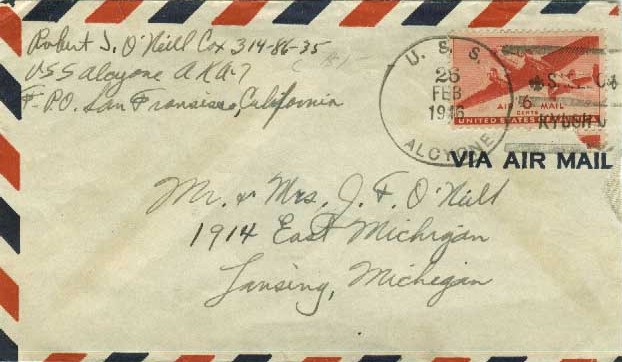 Robert J. O'Neill Cox 314-86-35
USS Alcyone AKA-7
F-PO. San Fransisco, California
U. S. S.
26
FEB
1946
ALCYONE
6
AIR MAIL
CENTS
UNITED STATES
KYUSHU
VIA AIR MAIL
Mr. & Mrs. J. F. O'Neill
1914 East Michigan
Lansing, Michigan